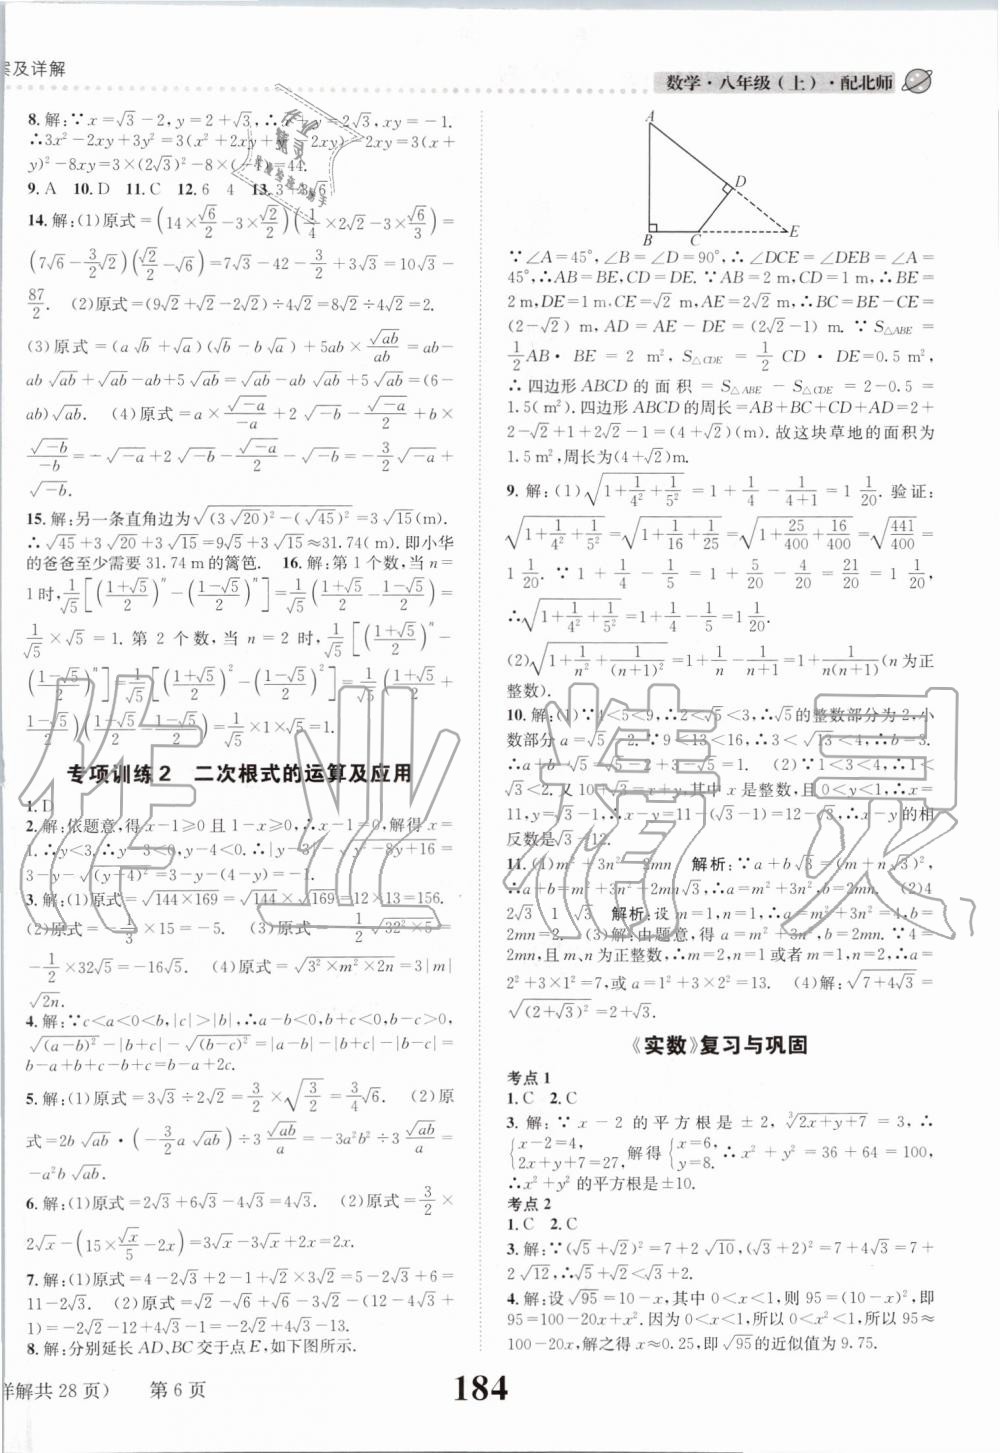 案及详解
数学·八年级（上）·配北师
8.解:∵x=√3-2,y=2+√3,∴x+y=2√3,xy=-1.
∴3x²-2xy+3y²=3(x²+2xy+y²)-8xy=3(x+
y)²-8xy=3×(2√3)²-8×(-1)=44.
9.A 10.D 11.C 12.6 4
14.解:(1)原式=(14×√6/2-3×√2/2)(1/4×2√2-3×√6/3)=
(7√6-3/2√2)(√2/2-√6)=7√3-42-3/2+3√3=10√3-
87/2. (2)原式=(9√2+√2-2√2)÷4√2=8√2÷4√2=2.
(3)原式=(a√b+√a)(√b-b√a)+5ab×√ab/ab=ab-
ab√ab+√ab-ab+5√ab=√ab-ab√ab+5√ab=(6-
ab)√ab. (4)原式=a×√-a/-a+2√-b-√-a/2+b×
√-b/-b=-√-a+2√-b-√-a/2-√-b=-3/2√-a+
√-b.
15.解:另一条直角边为√(3√20)²-(√45)²=3√15(m).
∴√45+3√20+3√15=9√5+3√15≈31.74(m).即小华
的爸爸至少需要31.74 m的篱笆. 16.解:第1个数,当n=
1时,1/√5[((1+√5)/2)ⁿ-((1-√5)/2)ⁿ]=1/√5((1+√5)/2-(1-√5)/2)=
1/√5×√5=1.第2个数,当n=2时,1/√5[((1+√5)/2)ⁿ-
((1-√5)/2)ⁿ]=1/√5[((1+√5)/2)²-((1-√5)/2)²]=1/√5((1+√5)/2+
(1-√5)/2)((1+√5)/2-(1-√5)/2)=1/√5×1×√5=1.
专项训练2 二次根式的运算及应用
1.D
2.解:依题意,得x-1≥0且1-x≥0,∴x-1=0,解得x=
1.∴y<3.∴y-3<0,y-4<0.∴|y-3|-√y²-8y+16=
3-y-√(y-4)²=3-y-(4-y)=-1.
3.解:(1)原式=√144×169=√144×√169=12×13=156.
(2)原式=-1/3×15=-5. (3)原式=-1/2√32²×5=
-1/2×32√5=-16√5. (4)原式=√3²×m²×2n=3|m|
√2n.
4.解:∵c<a<0<b,|c|>|b|,∴a-b<0,b+c<0,b-c>0,
√(a-b)²-|b+c|-√(b-c)²=|a-b|-|b+c|-|b-c|=
b-a+b+c-b+c=b-a+2c.
5.解:(1)原式=3√3÷2√2=3/2×√3/2=3/4√6. (2)原
式=2b√ab·(-3/2a√ab)÷3√ab/a=-3a²b²÷3√ab/a=
-a²b√ab.
6.解:(1)原式=2√3+6√3-4√3=4√3. (2)原式=3/2×
2√x-(15×√x/5-2x)=3√x-3√x+2x=2x.
7.解:(1)原式=4-2√3+2+1-(√3)²+2=5-2√3+6=
11-2√3. (2)原式=√2-√6+√6-3√2-(12-4√3+
1)=-2√2-12+4√3-1=-2√2+4√3-13.
8.解:分别延长AD、BC交于点E,如下图所示.
A
D
B
C
E
∵∠A=45°,∠B=∠D=90°,∴∠DCE=∠DEB=∠A=
45°,∴AB=BE,CD=DE.∵AB=2 m,CD=1 m,∴BE=
2 m,DE=1 m,CE=√2 m,AE=2√2 m,∴BC=BE-CE=
(2-√2) m,AD=AE-DE=(2√2-1) m.∵S△ABE=
1/2AB·BE=2 m²,S△CDE=1/2CD·DE=0.5 m²,
∴四边形ABCD的面积=S△ABE-S△CDE=2-0.5=
1.5(m²).四边形ABCD的周长=AB+BC+CD+AD=2+
2-√2+1+2√2-1=(4+√2)(m).故这块草地的面积为
1.5 m²,周长为(4+√2)m.
9.解:(1)√1+1/4²+1/5²=1+1/4-1/(4+1)=1 1/20.验证:
√1+1/4²+1/5²=√1+1/16+1/25=√1+25/400+16/400=√441/400=
1 1/20.∵1+1/4-1/5=1+5/20-4/20=21/20=1 1/20,
∴√1+1/4²+1/5²=1+1/4-1/5=1 1/20.
(2)√1+1/n²+1/(n+1)²=1+1/n-1/(n+1)=1+1/n(n+1)(n为正
整数).
10.解:(1)∵4<5<9,∴2<√5<3,∴√5的整数部分为2,小
数部分a=√5-2.∵9<13<16,∴3<√13<4,∴b=3.
∴a+b-√5=√5-2+3-√5=1. (2)∵1<3<4,∴1<
√3<2.又10+√3=x+y,其中x是整数,且0<y<1,∴x=
11,y=√3-1,∴x-y=11-(√3-1)=12-√3,∴x-y的相
反数是√3-12.
11.(1)m²+3n² 2mn 解析:∵a+b√3=(m+n√3)²,
∴a+b=m²+3n²+2mn√3,∴a=m²+3n²,b=2mn. (2)4
2√3 1 √3 解析:设m=1,n=1,∴a=m²+3n²=4,b=
2mn=2. (3)解:由题意,得a=m²+3n²,b=2mn.∵4=
2mn,且m、n为正整数,∴m=2,n=1或者m=1,n=2,∴a=
2²+3×1²=7,或a=1²+3×2²=13. (4)解:√7+4√3=
√(2+√3)²=2+√3.
《实数》复习与巩固
考点1
1.C 2.C
3.解:∵x-2的平方根是±2,∛2x+y+7=3,∴
{x-2=4, 2x+y+7=27,解得{x=6, y=8.∴x²+y²=36+64=100,
∴x²+y²的平方根是±10.
考点2
1.C 2.C
3.解:∵(√5+√2)²=7+2√10,(√3+2)²=7+4√3=7+
2√12,∴√5+√2<√3+2.
4.解:设√95=10-x,其中0<x<1,则95=(10-x)²,即
95=100-20x+x².因为0<x<1,所以0<x²<1,所以95≈
100-20x,解之得x≈0.25,即√95的近似值为9.75.
详解共28页） 第6页
184
作业精灵